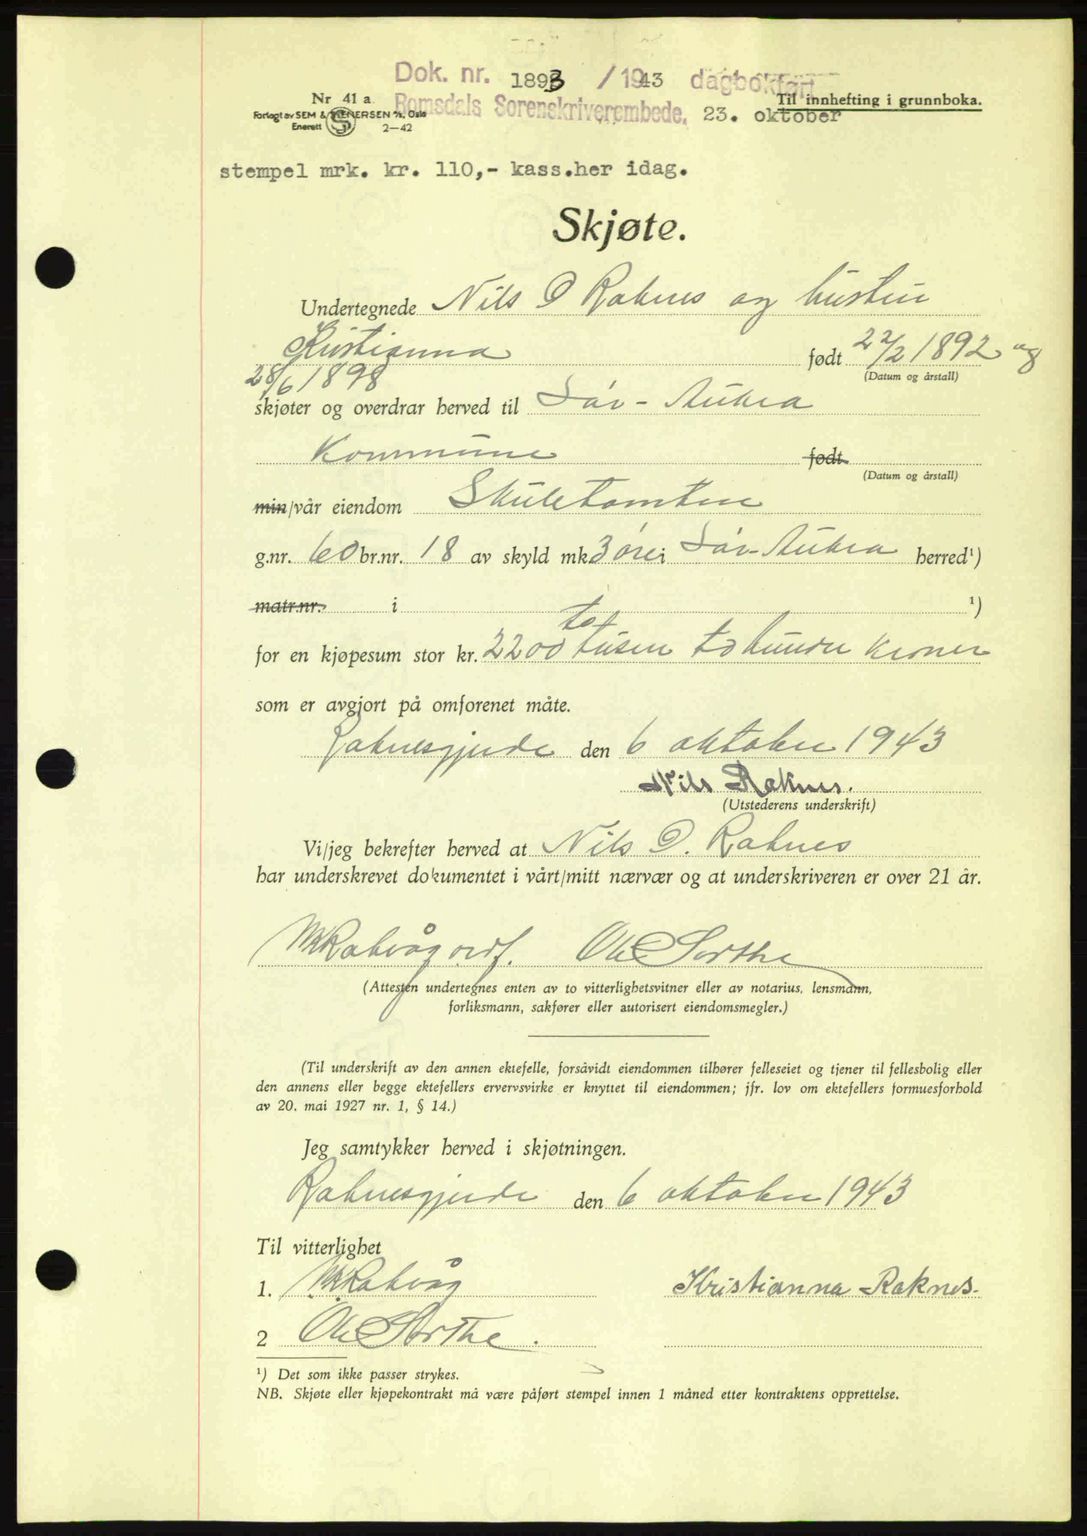 Dok. nr. 1893 / 1943 dagbokført
Nr 41 a Romsdals Sorenskriverembede. Til innhefting i grunnboka.
Forlagt av SEM & STENERSEN A/S, Oslo 23. oktober
Enerett 2-42
stempel mrk. kr. 110,- kass.her idag.
Skjøte.
Undertegnede Nils D Raknes og hustru
Kristianna født 22/2 1892 og
28/6 1898 (Datum og årstall)
skjøter og overdrar herved til Sør-Aukra
Kommune født
(Datum og årstall)
min/vår eiendom Skuletomten
g.nr. 60 br.nr. 18 av skyld mk 3 øre i Sør-Aukra herred¹)
matr.nr. i ¹)
for en kjøpesum stor kr. 2200 to tusen to hundre kroner
som er avgjort på omforenet måte.
Raknesgjerde den 6 oktober 1943
Nils Raknes.
(Utstederens underskrift)
Vi/jeg bekrefter herved at Nils D. Raknes
har underskrevet dokumentet i vårt/mitt nærvær og at underskriveren er over 21 år.
Rakvåg ordf. Ole Sorthe
(Attesten undertegnes enten av to vitterlighetsvitner eller av notarius, lensmann,
forliksmann, sakfører eller autorisert eiendomsmegler.)
(Til underskrift av den annen ektefelle, forsåvidt eiendommen tilhører felleseiet og tjener til fellesbolig eller
den annens eller begge ektefellers ervervsvirke er knyttet til eiendommen; jfr. lov om ektefellers formuesforhold
av 20. mai 1927 nr. 1, § 14.)
Jeg samtykker herved i skjøtningen.
Raknesgjerde den 6 oktober 1943
Til vitterlighet
1. Rakvåg Kristianna Raknes.
2 Ole Sorthe.
¹) Det som ikke passer strykes.
NB. Skjøte eller kjøpekontrakt må være påført stempel innen 1 måned etter kontraktens opprettelse.